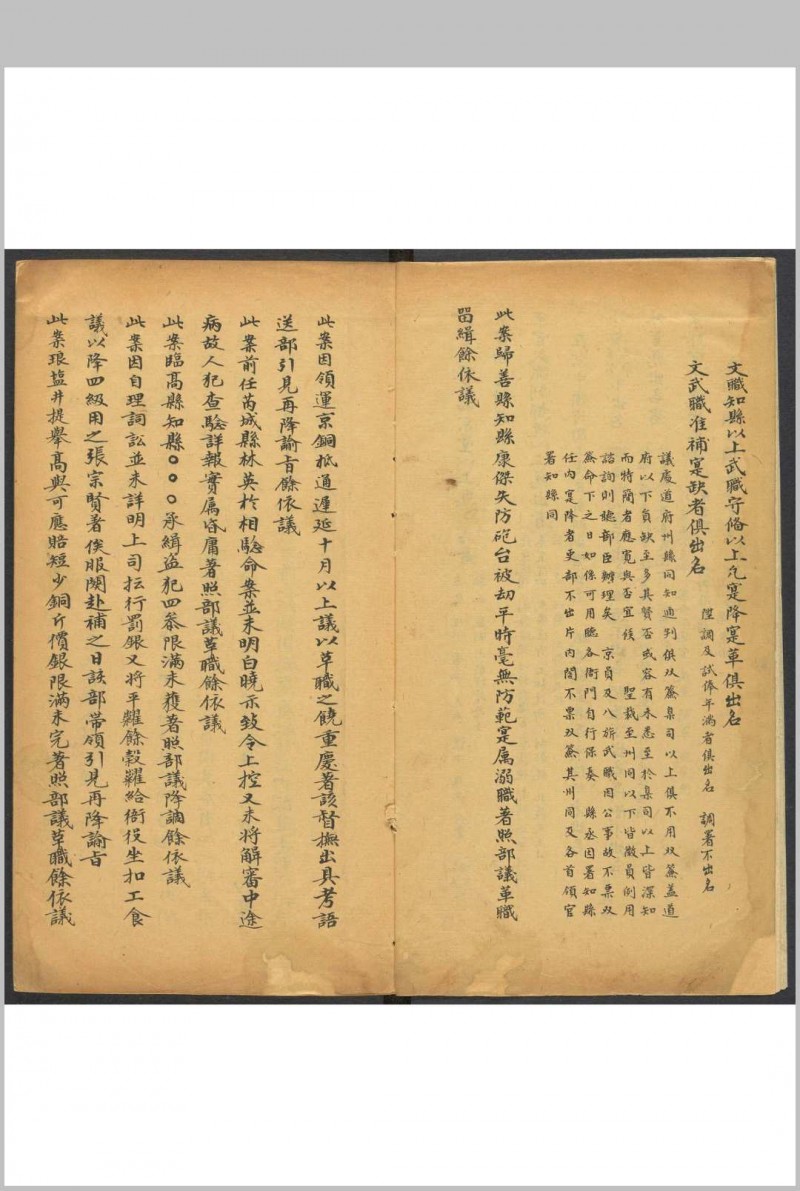 文職知縣以上武職守俻以上凢寔降寔革俱出名
文武職准補寔缺者俱出名
陞調及試俸年滿者俱出名 調署不出名
議處道府州縣同知通判俱双簽臬司以上俱不用双簽蓋道
府以下員缺至多其賢否或容有未悉至於臬司以上皆深知
而特簡者應寛與否宜候 聖裁至州同以下皆微員例用
諮詢則聽部臣辦理矣 京員及八旂武職因公事故不票双
簽命下之日如係可用聽各衙門自行保奏 縣丞因署知縣
任内寔降者吏部不出片内閣不票双簽其州同及各首領官
署知縣同
此案歸善縣知縣康傑失防砲台被刼平時毫無防範寔属溺職著照部議革職
畱緝餘依議
此案因領運京銅抵通遲延十月以上議以革職之饒重慶著該督撫出具考語
送部引見再降諭旨餘依議
此案前任芮城縣林英於相騐命案並未明白曉示致令上控又未將解審中途
病故人犯查騐詳報實属昏庸著照部議革職餘依議
此案臨高縣知縣〇〇〇承緝盗犯四叅限滿未獲著照部議降調餘依議
此案因自理詞訟並未詳明上司抎行罰銀又將平糶餘穀糶給衙役坐扣工食
議以降四級用之張宗賢著俟服闋赴補之日該部帶領引見再降諭旨
此案琅塩井提舉高與可應賠短少銅斤價銀限滿未完著照部議革職餘依議